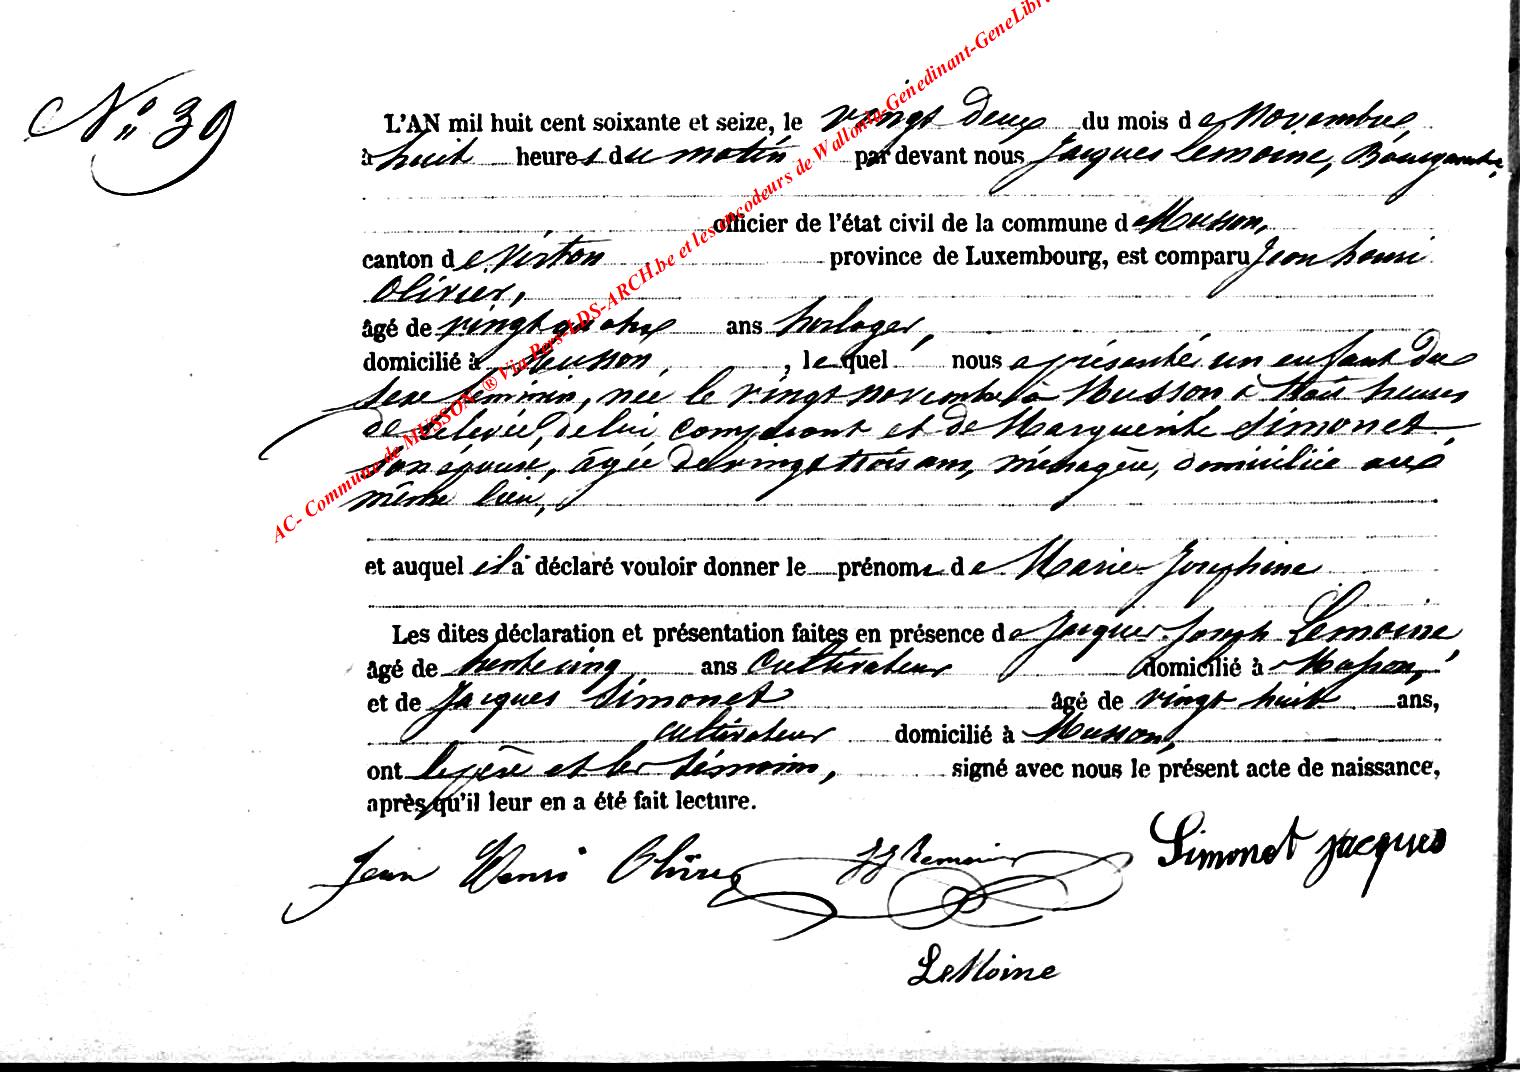 N° 39
L'AN mil huit cent soixante et seize, le vingt deux du mois de Novembre,
à huit heures du matin par devant nous Jacques Lemoine, Bourgmestre,
officier de l'état civil de la commune de Musson,
canton de Virton province de Luxembourg, est comparu Jean henri
Olivier,
âgé de vingt quatre ans horloger,
domicilié à Musson, lequel nous a présenté un enfant du
sexe féminin, née le vingt novembre à Musson à trois heures
de relevée, de lui comparant et de Marguerite Simonet,
son épouse, âgée de vingt trois ans, ménagère, domiciliée au
même lieu,
et auquel il a déclaré vouloir donner le prénoms de Marie Josephine
Les dites déclaration et présentation faites en présence de Jacques Joseph Lemoine
âgé de trente cinq ans Cultivateur domicilié à Musson,
et de Jacques Simonet âgé de vingt huit ans,
cultivateur domicilié à Musson,
ont le père et les témoins, signé avec nous le présent acte de naissance,
après qu'il leur en a été fait lecture.
Jean Henri Olivier JJ Lemoine Simonet Jacques
LeMoine
AC- Commune de MUSSON ® Via Pers-LDS-ARCH.be et les encodeurs de Wallonia-Genedinant-GeneLibr